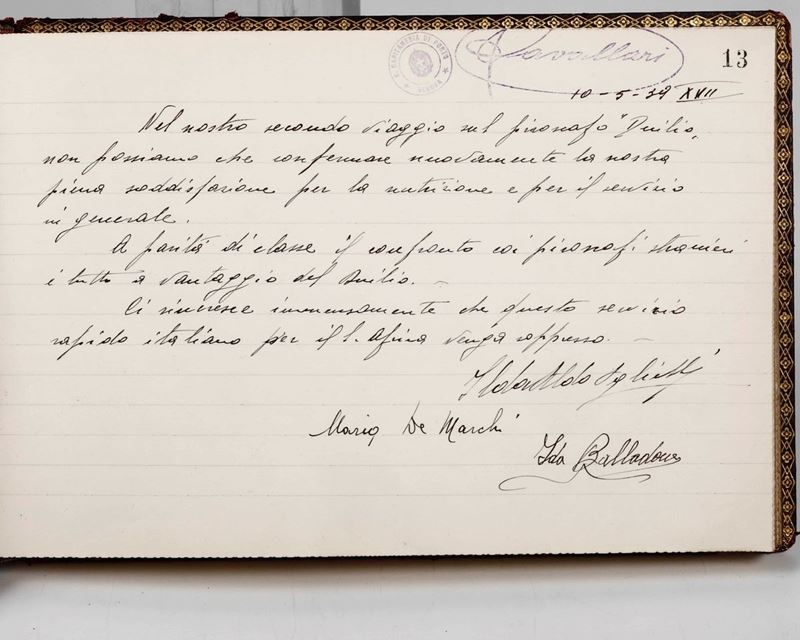 R. CAPITANERIA DI PORTO GENOVA
Cavallari
13
10-5-39 XVII
Nel nostro secondo viaggio sul piroscafo "Duilio"
non possiamo che confermare nuovamente la nostra
piena soddisfazione per la nutrizione e per il servizio
in generale.
A parità di classe il confronto coi piroscafi stranieri
è tutto a vantaggio del Duilio. -
Ci rincresce immensamente che questo servizio
rapido italiano per il S. Africa venga soppresso. -
Aldo
Maria De Marchi
Ida Balladore